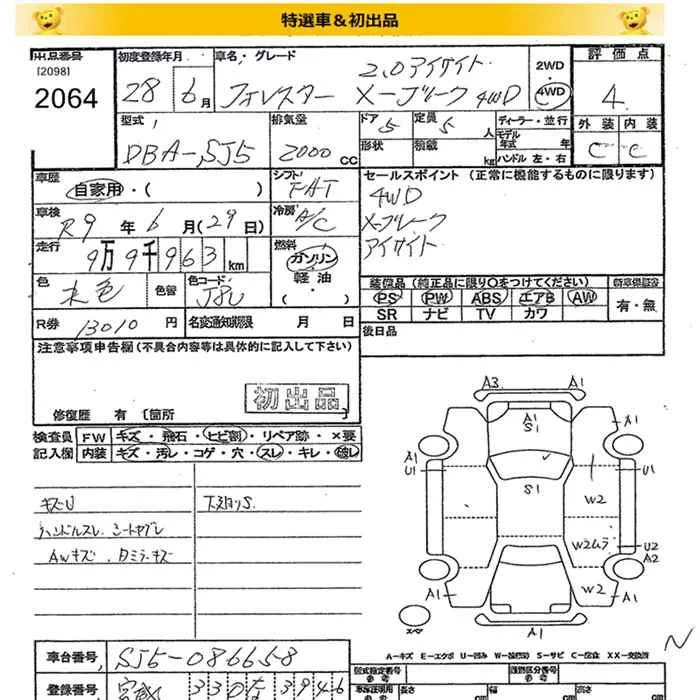 特選車＆初出品
出品番号
[2098]
2064
初度登録年月
28 6月
車名・グレード
2.0アイサイト
フォレスター X-ブレーク 4WD
2WD
・
4WD
評価点
4
外装 内装
C C
型式
DBA-SJ5
排気量
2000 cc
ドア 5
定員 5 人
形状
積載 kg
ディーラー・並行
モデル年式 年
ハンドル 左・右
車歴
自家用・( )
シフト
FAT
セールスポイント (正常に機能するものに限ります)
4WD
X-ブレーク
アイサイト
車検
R9年6月(29日)
冷房
A/C
走行
9万9千963km
燃料
ガソリン
軽油
・( )
色
色替
色コード
J8U
装備品(純正品に限り○をつけてください)
PS PW ABS エアB AW
SR ナビ TV カワ
新車保証書
有・無
R券 13010円
名変通知期限 月 日
後日品
注意事項申告欄(不具合内容等は具体的に記入して下さい)
初出品
修復歴 有 〔箇所 〕
検査員記入欄
FW キズ・飛石・ヒビ割・リペア跡・×要
内装 キズ・汚レ・コゲ・穴・スレ・キレ・破レ
キズU
下廻りS
ハンドルスレ シートヤブレ
AWキズ
A3 A1
A1
S1
A1
A1
U1
U1
S1
W2
W2ムラ
U2
A2
W2
A1
A1
A1
スペア
A-キズ E-エクボ U-凹み W-波(板) S-サビ C-腐食 XX-交換済
N
車台番号
SJ5-086658
登録番号
330 な 3946
型式指定番号
参考
類別区分番号
参考
長さ
幅
高さ